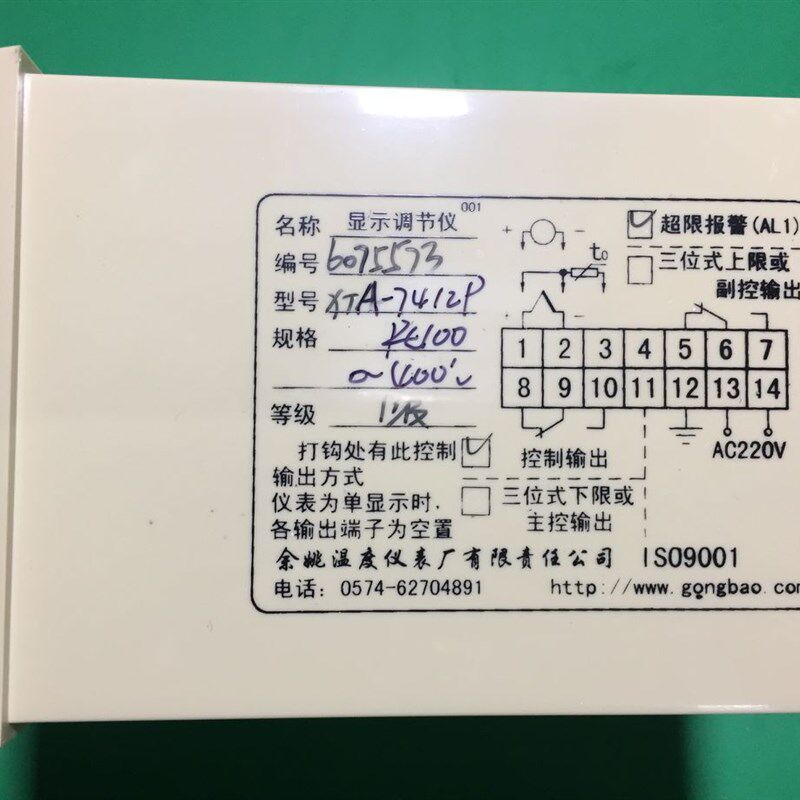 001
名称 显示调节仪
编号 6075573
型号 XTA-7412P
规格 Pt100
0~400℃
等级 1级
打钩处有此控制
输出方式
仪表为单显示时，
各输出端子为空置
+ -
t0
超限报警(AL1)
三位式上限或
副控输出
1 2 3 4 5 6 7
8 9 10 11 12 13 14
AC220V
控制输出
三位式下限或
主控输出
余姚温度仪表厂有限责任公司 ISO9001
电话: 0574-62704891 http://www.gongbao.com